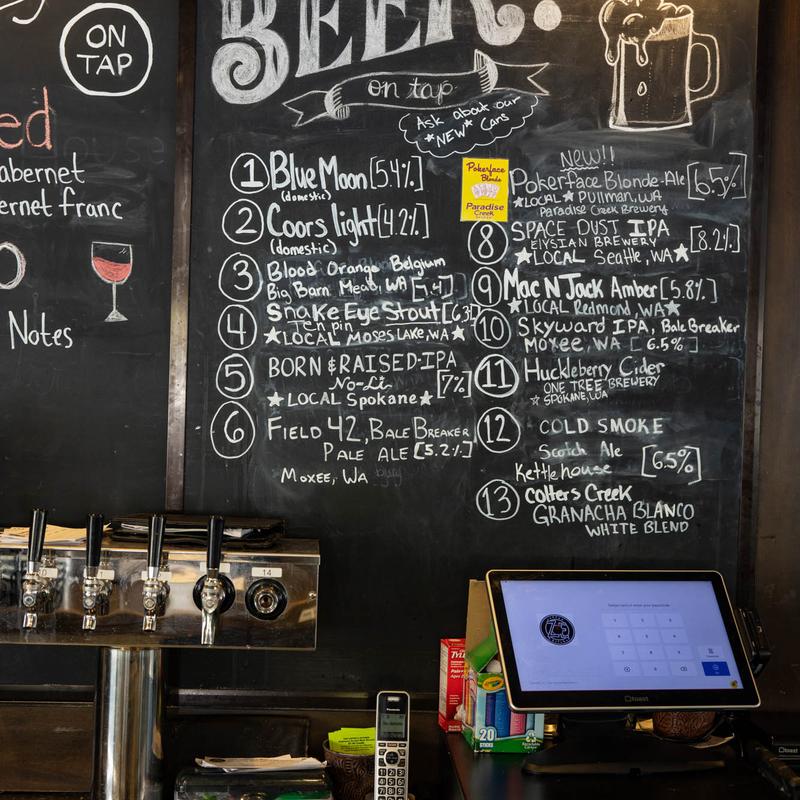 ON
TAP
ed
abernet
ernet franc
Notes
BEER!
on tap
Ask about our
*NEW* Cans
1 Blue Moon [5.4%]
(domestic)
2 Coors light [4.2%]
(domestic)
3 Blood Orange Belgium
Big Barn Mead, WA [7.4]
4 Snake Eye Stout [6.3
Ten pin
★LOCAL Moses Lake, WA★
5 BORN & RAISED-IPA
No-Li [7%]
★LOCAL Spokane★
6 FIELD 42, BALE BREAKER
PALE ALE [5.2%]
MOXEE, WA
NEW!!
Pokerface
Blonde
Paradise
Creek
Pokerface Blonde-Ale [6.5%]
★LOCAL★ Pullman, WA
Paradise Creek Brewery
8 SPACE DUST IPA
ELYSIAN BREWERY [8.2%]
★LOCAL Seattle, WA★
9 Mac N Jack Amber [5.8%]
★LOCAL Redmond, WA★
10 Skyward IPA, Bale Breaker
MOXEE, WA [6.5%]
11 Huckleberry Cider
ONE TREE BREWERY
☆ SPOKANE, WA
12 COLD SMOKE
Scotch Ale
Kettlehouse [6.5%]
13 Colters Creek
GRANACHA BLANCO
WHITE BLEND
14
20
STICKS
toast